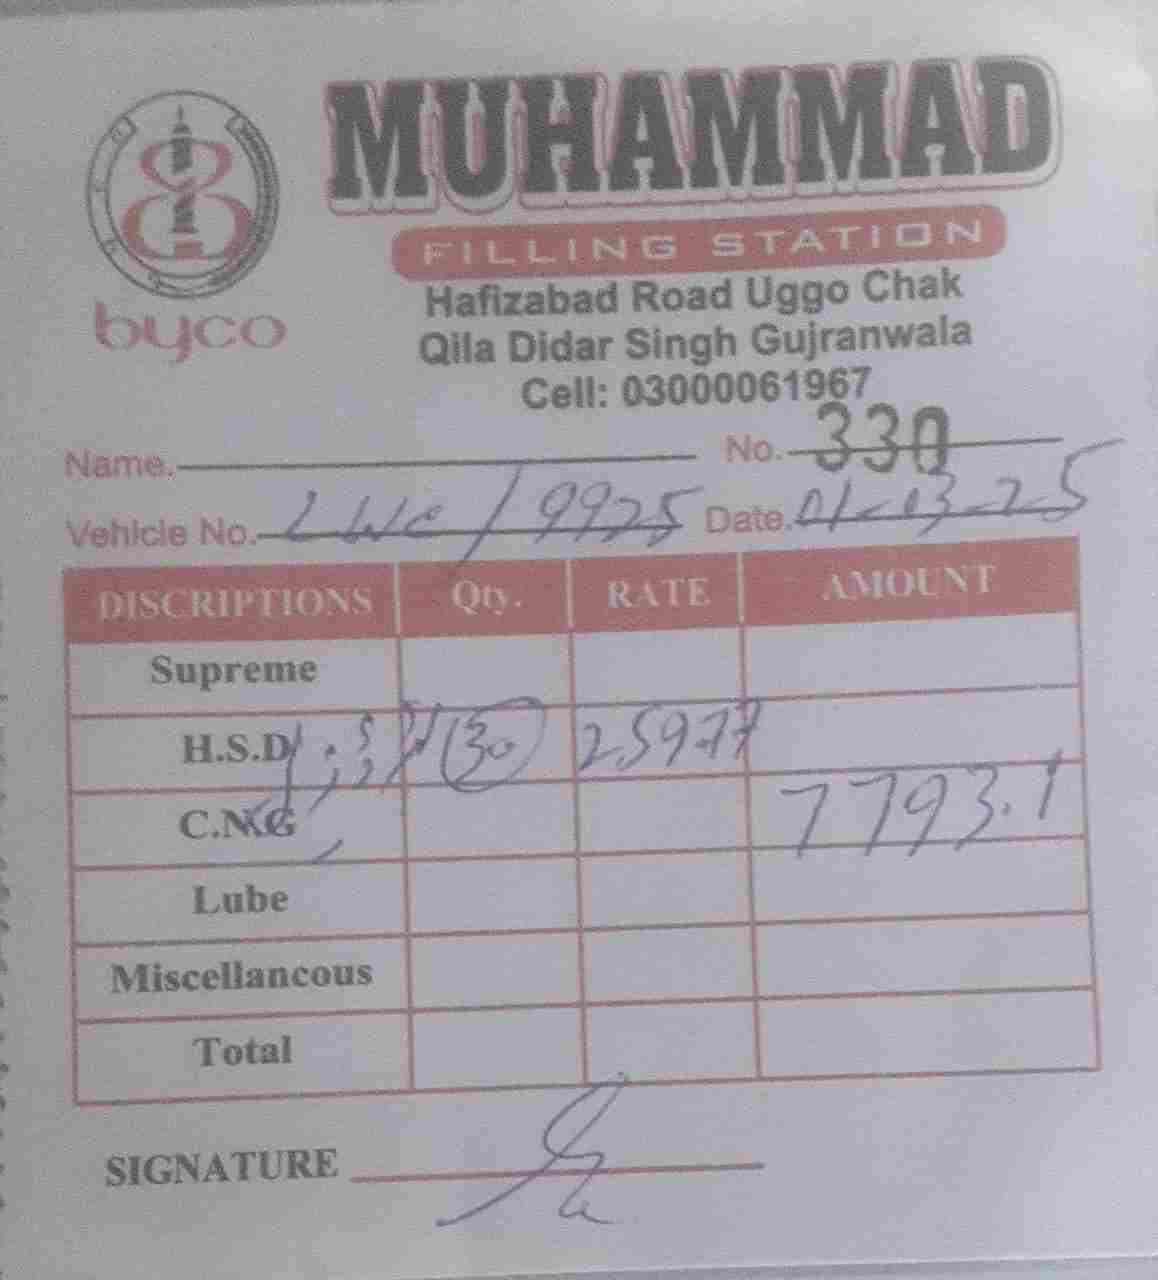 MUHAMMAD
FILLING STATION
byco
Hafizabad Road Uggo Chak
Qila Didar Singh Gujranwala
Cell: 03000061967
Name. No. 330
Vehicle No. LWC/9925 Date. 01-03-25
DISCRIPTIONS Qty. RATE AMOUNT
Supreme
H.S.D 30 259.77
C.N.G 7793.1
Lube
Miscellancous
Total
SIGNATURE